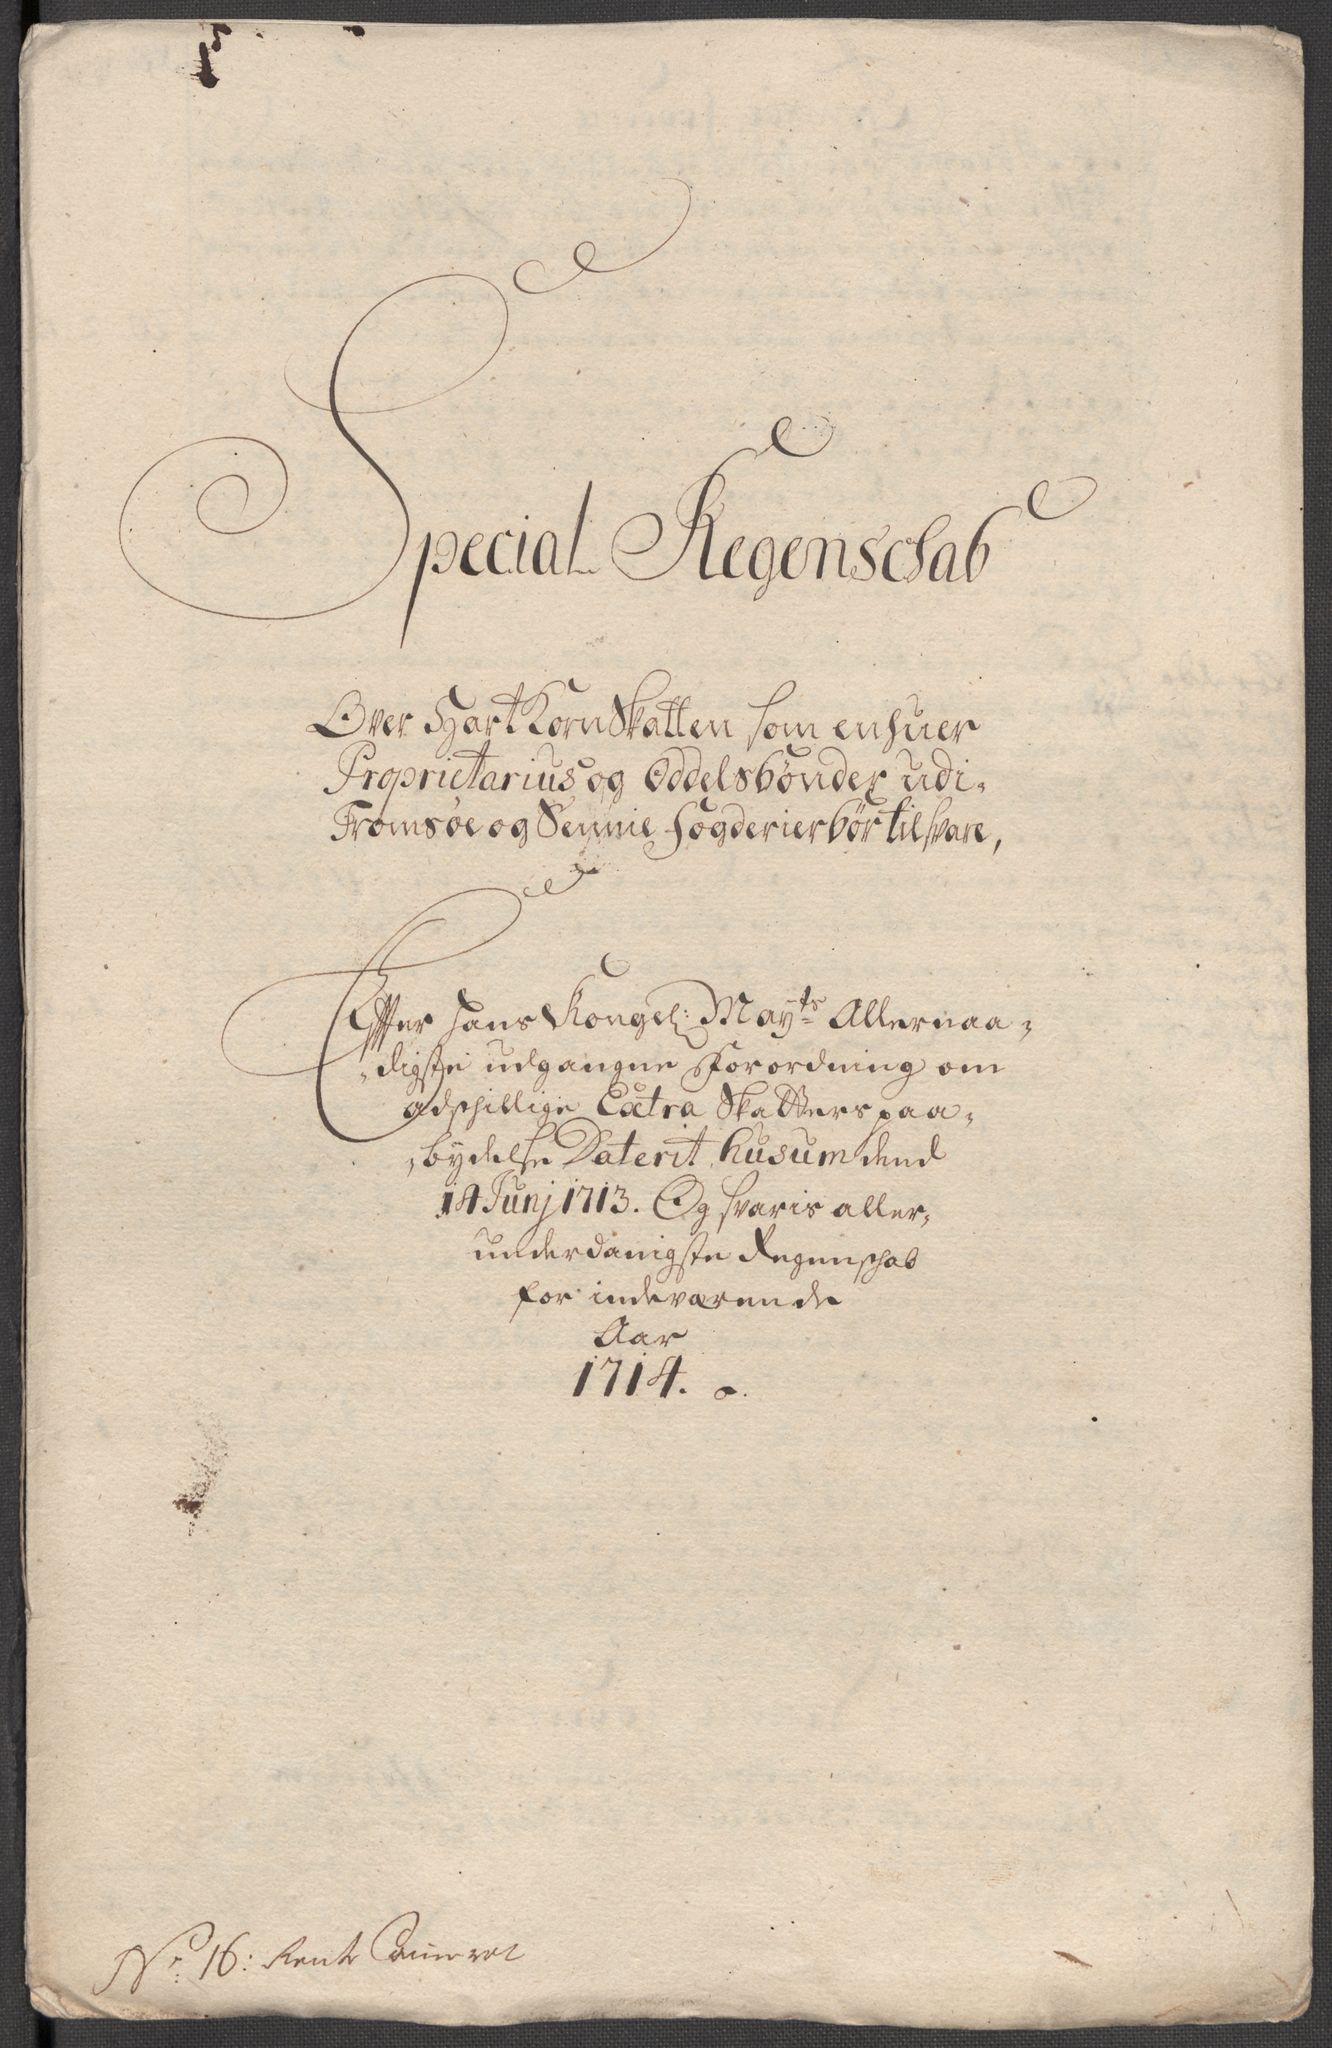 Special Regenschab
Over Hart Korn Skatten som enhuer
Proprietarius og Oddelsbønder udi-
Tromsøe og Sennie Fogderier bør til svare,
Effter Hans Kongel: Mayts Allernaa-
-digste udgangne Forordning om
adschillige Extra Skatters paa-
-bydelse Daterit Husum dend
14 Junj 1713. Og svaris aller-
underdanigste Regenschab
for indeværende
Aar
1714.
No: 16: Rente Cammeret